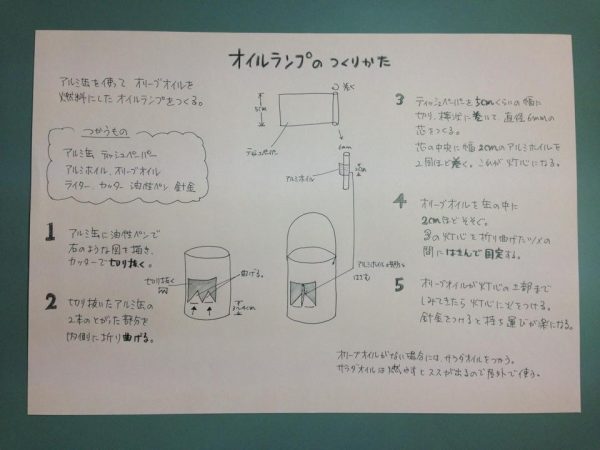 オイルランプのつくりかた
アルミ缶を使って オリーブオイルを
燃料にした オイルランプをつくる。
つかうもの
アルミ缶 ティッシュペーパー
アルミホイル、オリーブオイル
ライター、カッター 油性ペン 針金
1 アルミ缶に油性ペンで
右のような図を描き、
カッターで切り抜く。
2 切り抜いたアルミ缶の
2本のとがった部分を
内側に折り曲げる。
5cm
巻く
ティッシュペーパー
6mm
アルミホイル
2cm
切り抜く
曲げる。
アルミホイルの部分を
はさむ
3 ティッシュペーパーを5cmくらいの幅に
切り、棒状に巻いて、直径6mmの
芯をつくる。
芯の中央に幅2cmのアルミホイルを
2回ほど巻く。これが灯心になる。
4 オリーブオイルを缶の中に
2cmほどそそぐ。
3の灯心を折り曲げたツメの
間にはさんで固定する。
5 オリーブオイルが灯心の上部まで
しみてきたら灯心に火をつける。
針金をつけると持ち運びが楽になる。
オリーブオイルがない場合には、サラダオイルをつかう。
サラダオイルは燃やすとススが出るので屋外で使う。